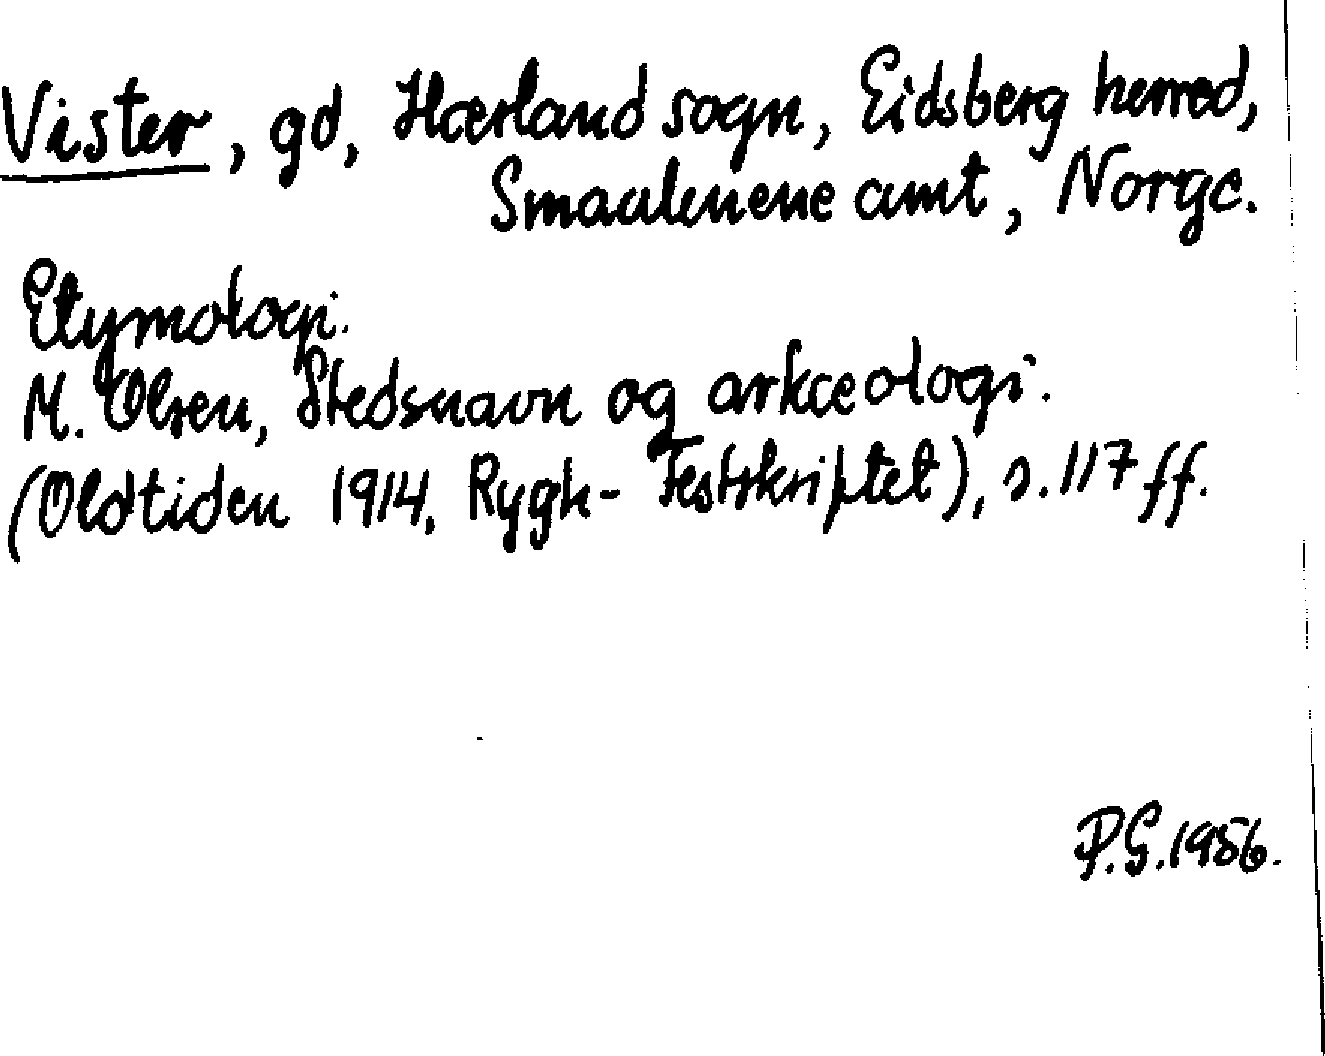 Vister, gd, Hærland sogn, Eidsberg herred,
Smaalenene amt, Norge.
Etymologi.
M. Olsen, Stedsnavn og arkæologi.
(Oldtiden 1914, Rygh-Festskriftet), s. 117 ff.
P.G. 1956.